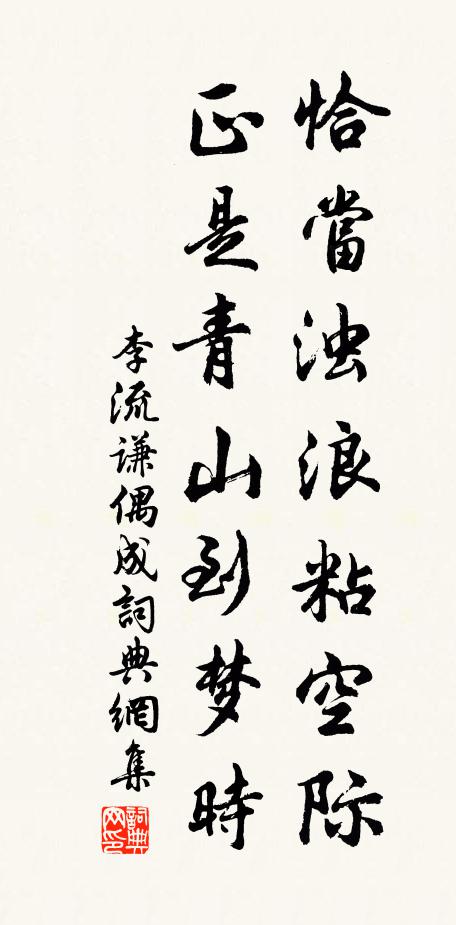 恰當浊浪粘空际
正是青山到梦時
李流谦偶成詞典網集
詞典網印